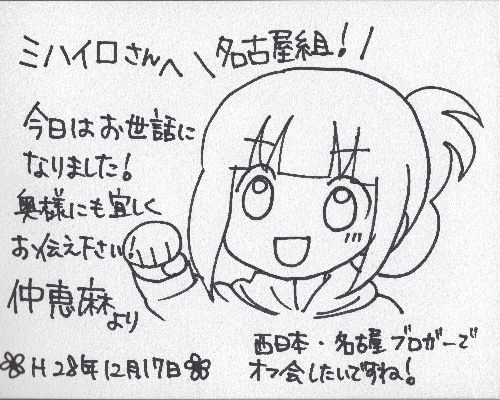 ミハイロさんへ
\名古屋組!/
今日はお世話に
なりました!
奥様にも宜しく
お伝え下さい!
仲恵麻より
H28年12月17日
西日本・名古屋ブロガーで
オフ会したいですね!